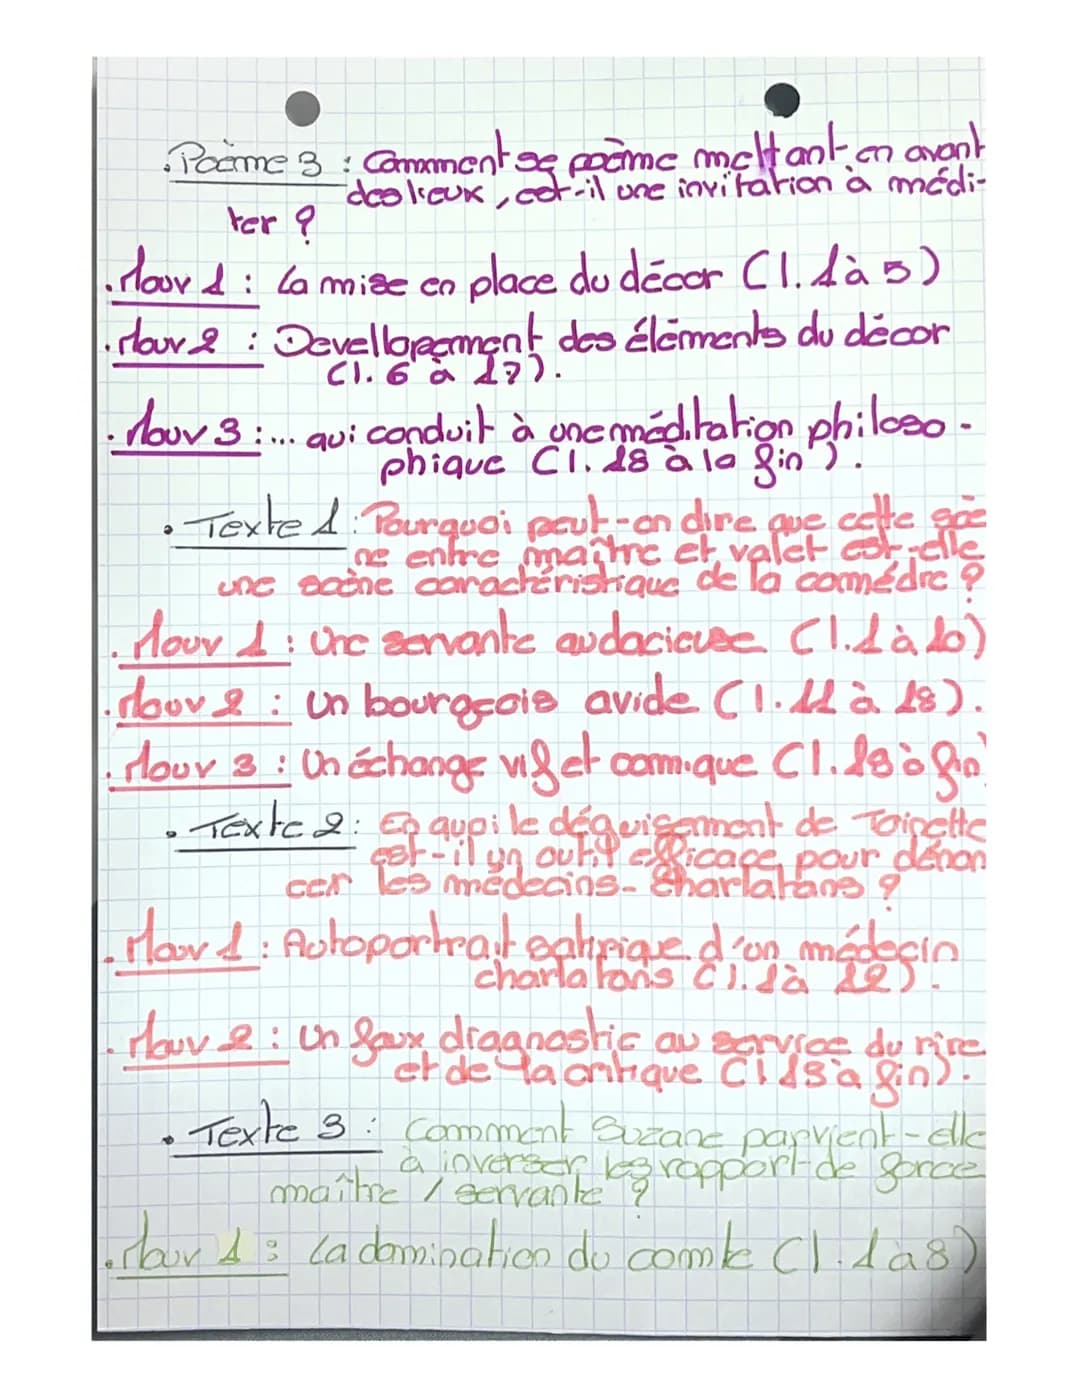 . Poème 3 : Commment se poème mettant en avant
des lieux, est-il une invitation à médi-
ter ?
. Mouv 1 : La mise en place du décor (l. 1 à 5)
. Mouv 2 : Devellopemment des éléments du décor
(l. 6 à 17).
. Mouv 3 : ... qui conduit à une méditation philoso-
phique (l. 18 à la fin).
. Texte 1 : Pourquoi peut-on dire que cette scè
ne entre maître et valet est-elle
une scène caractéristique de la comédie ?
. Mouv 1 : Une servante audacieuse (l. 1 à 10)
. Mouv 2 : Un bourgeois avide (l. 11 à 18).
. Mouv 3 : Un échange vif et comique (l. 18 à fin)
. Texte 2 : En quoi le déguisemment de Toinette
est-il un outil efficace pour dénon
cer les médecins-charlatans ?
. Mouv 1 : Autoportrait satirique d'un médecin
charlatans (l. 1 à 12).
. Mouv 2 : Un faux diagnostic au service du rire
et de la critique (l 13 à fin).
. Texte 3 : Commment Suzane parvient-elle
à inverser les rapport de force
maître / servante ?
. Mouv 1 : La domination du comte (l. 1 à 8)